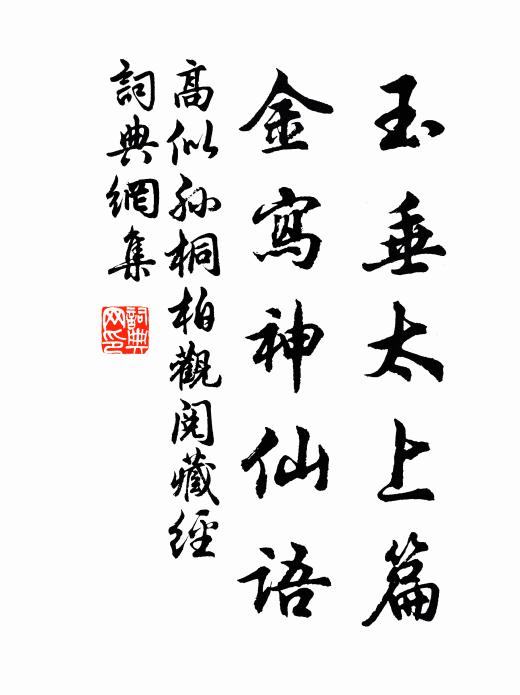 玉垂太上篇
金寫神仙語
高似孙桐柏觀閱藏經
詞典網集
詞典
网印